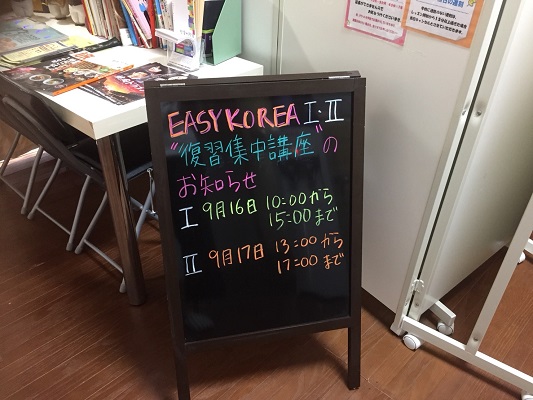 EASY KOREA I・II
"復習集中講座"の
お知らせ
I 9月16日 10:00から
15:00まで
II 9月17日 13:00から
17:00まで